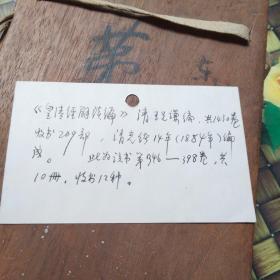 《皇清经解续编》清王先谦编，共1430卷
收书209部，清光绪14年（1884年）编
成。 此为该书第946—398卷，共
10册，收书12种。
第